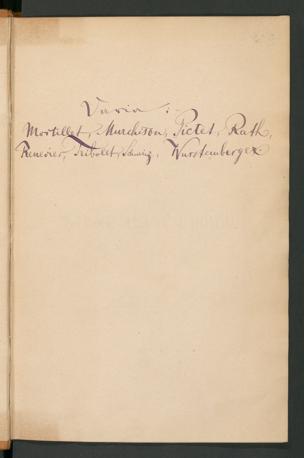 Varia:
Mortillet, Murchison, Pictet, Rath,
Renevier, Tribolet, Wurstemberger.